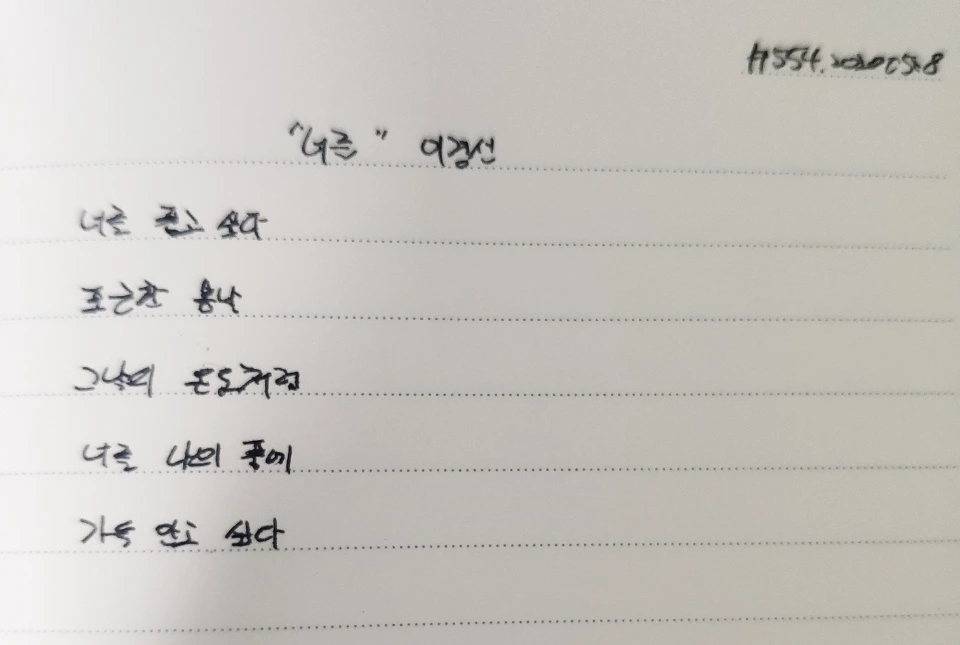 #554.
"너를" 이경선
너를 품고 싶다
포근한 봄날
그날의 온도처럼
너를 나의 품에
가득 안고 싶다